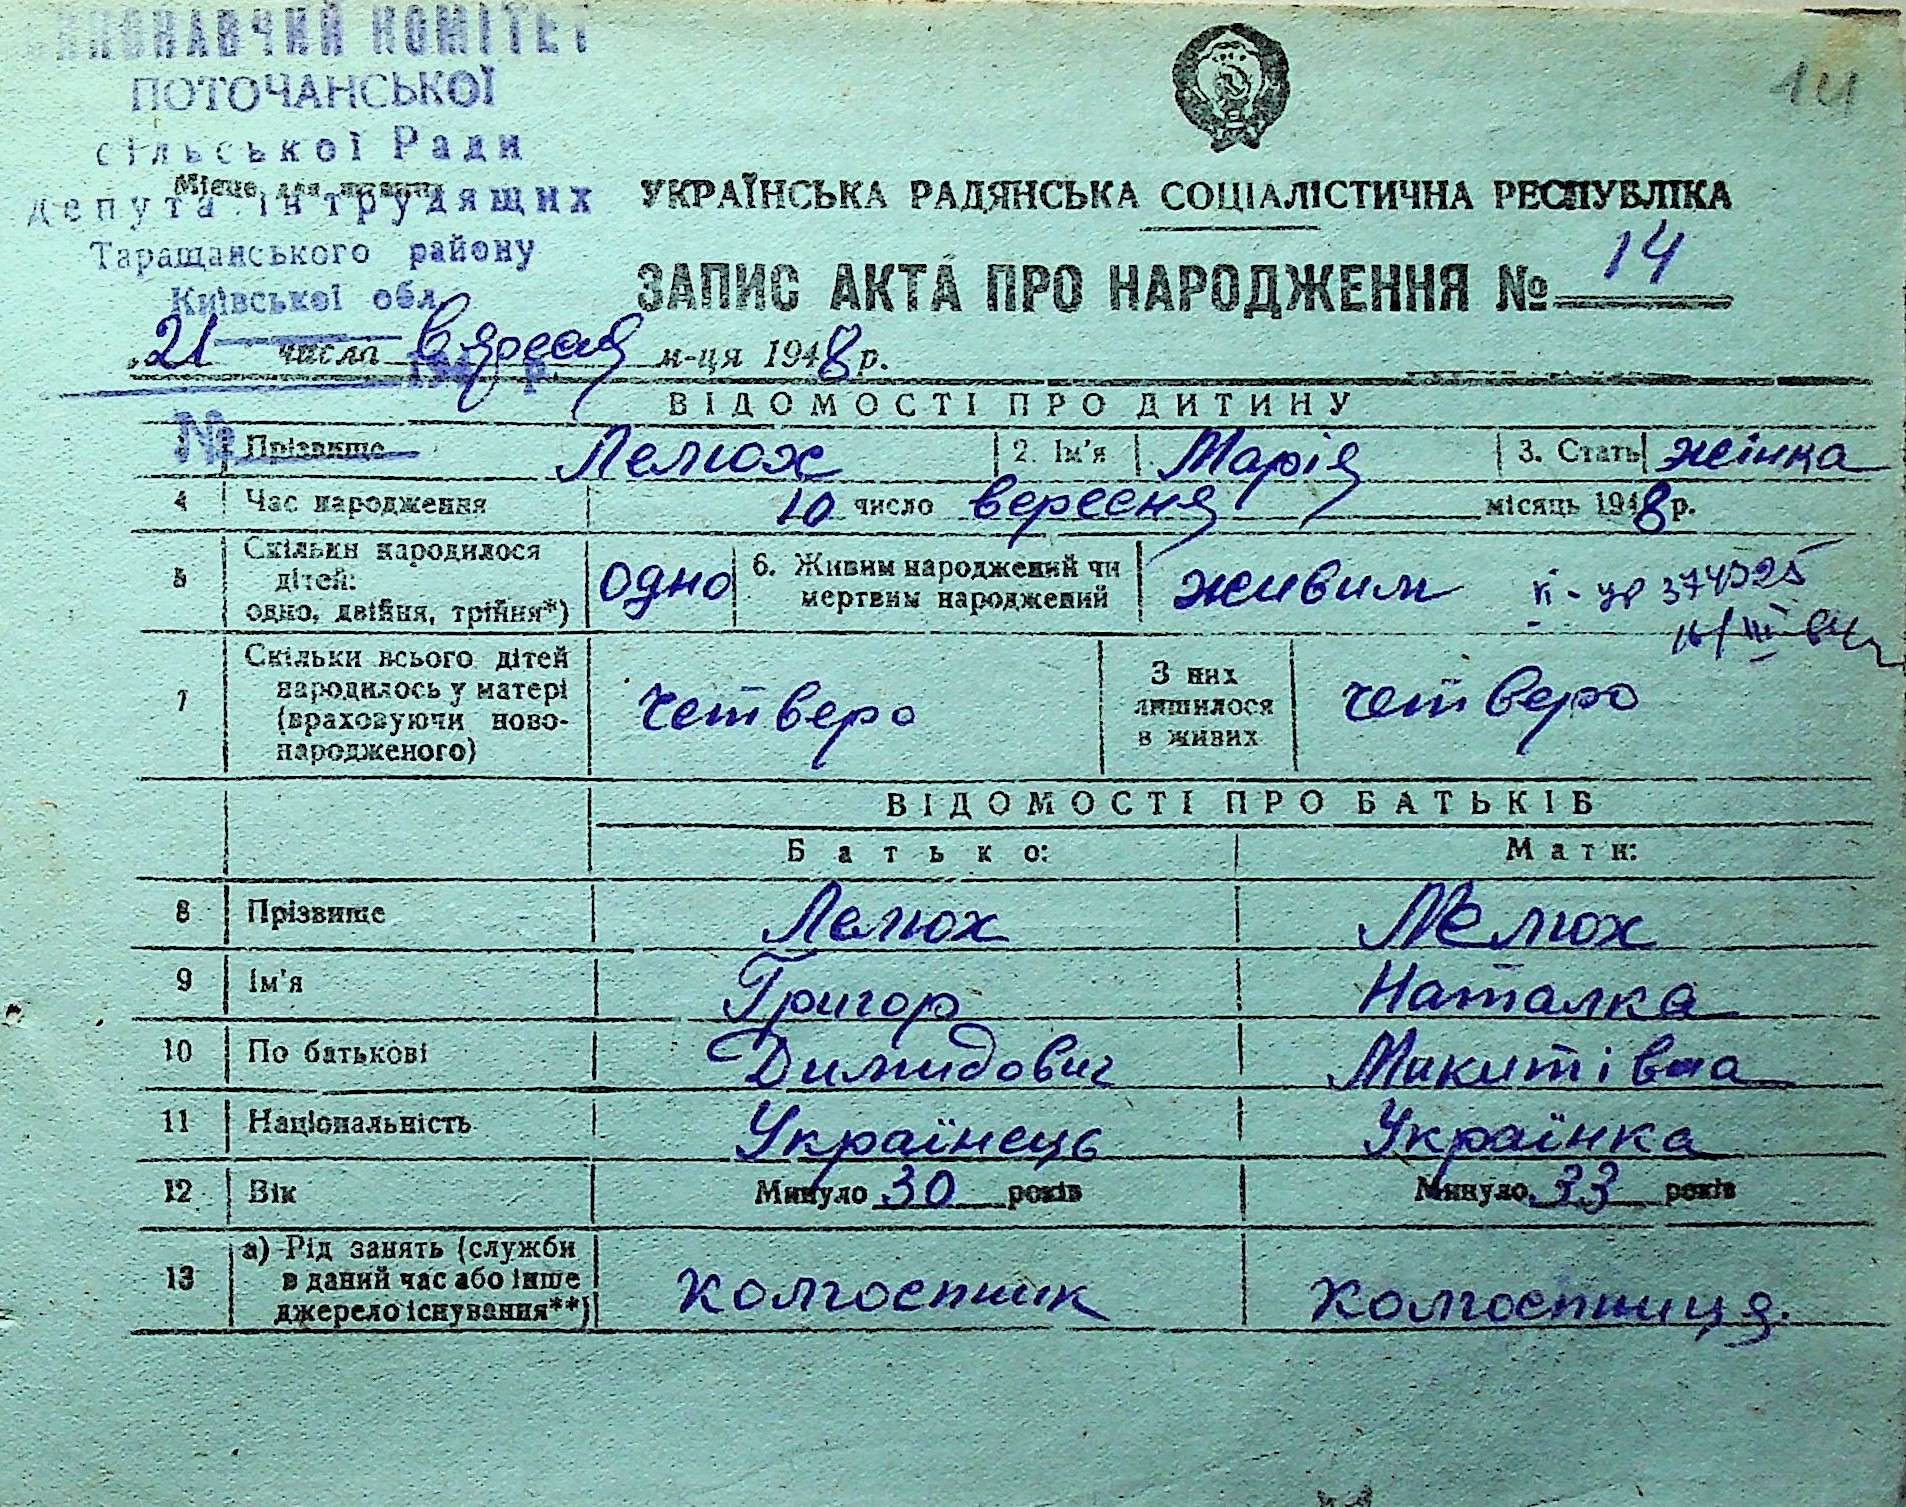 ВИКОНАВЧИЙ КОМІТЕТ
ПОТОЧАНСЬКОЇ
сільської Ради
Місце для штампу
депутатів трудящих
Таращанського району
Київської обл
14
УКРАЇНСЬКА РАДЯНСЬКА СОЦІАЛІСТИЧНА РЕСПУБЛІКА
ЗАПИС АКТА ПРО НАРОДЖЕННЯ № 14
„21 числа вересня м-ця 1948 р.
194 р.
№
ВІДОМОСТІ ПРО ДИТИНУ
1 Прізвище Лелюх 2. Ім'я Марія 3. Стать жінка
4 Час народження 10 число вересня місяць 1948 р.
5 Скільки народилося дітей: одно, двійня, трійня*) одно 6. Живим народжений чи мертвим народжений живим
7 Скільки всього дітей народилось у матері (враховуючи новонародженого) четверо З них лишилося в живих четверо
ВІДОМОСТІ ПРО БАТЬКІВ
Батько: Мати:
8 Прізвище Лелюх Лелюх
9 Ім'я Григор Наталка
10 По батькові Димидович Микитівна
11 Національність Українець Українка
12 Вік Минуло 30 років Минуло 33 років
13 а) Рід занять (служби в даний час або інше джерело існування**) Колгоспник Колгоспниця.